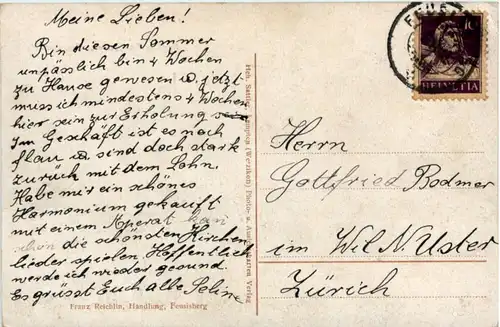 Meine Lieben!
Bin diesen Sommer
unpässlich bin 4 Wochen
zu Hause gewesen u. jetzt
muss ich mindestens 4 Wochen
hier sein zur Erholung
Im Geschäft ist es noch
flau u. sind doch stark
zurück mit dem Lohn.
Habe mir ein schönes
Harmonium gekauft
mit einem Aperat
die schönsten Kirchen
lieder spielen. Hoffentlich
werde ich wieder gesund.
Es grüsst Euch alle Seline
Franz Reichlin, Handlung, Feusisberg
(Wetzikon) Photo- u. Verlag
HELVETIA
Herrn
Gottfried Bodmer
im Wil N. Uster
Zürich